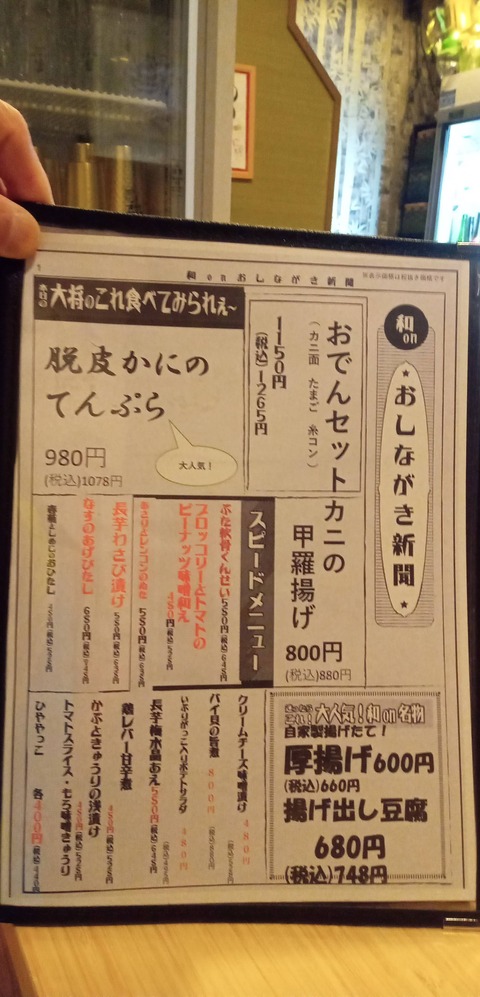 1
和 on おしながき新聞
※表示価格は税抜き価格です
和on
★おしながき新聞★
おでんセット
(カニ面 たまご 糸コン)
1150円
(税込)1265円
本日の大将のこれ食べてみられぇ~
脱皮かにの
てんぷら
980円
(税込)1078円
大人気!
カニの
甲羅揚げ
800円
(税込)880円
スピードメニュー
ぶた軟骨くんせい580円(税込)638円
ブロッコリーとトマトの
ピーナッツ味噌和え
480円(税込)528円
580円(税込)638円
長芋わさび漬け
580円(税込)638円
なすのあげびたし
680円(税込)748円
大人気!和on名物
自家製揚げたて!
厚揚げ600円
(税込)660円
揚げ出し豆腐
680円
(税込)748円
クリームチーズ味噌漬け 480円
バイ貝の旨煮 800円
いぶりがっこ入りポテトサラダ 480円
長芋梅水晶あえ580円(税込)638円
鶏レバー甘辛煮
かぶときゅうりの浅漬け 480円(税込)528円
トマトスライス・もろ味噌きゅうり
ひややっこ 各400円(税込)440円